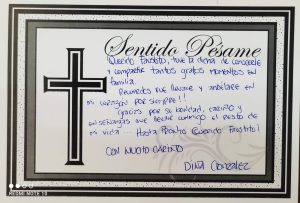 Sentido Pésame
Querido Faustito, tuve la dicha de conocerle
y compartir tantos gratos momentos en
familia.
Recuerdos que llevaré y anhelaré en
mi corazón por siempre!!
Gracias por su bondad, cariño y
enseñanzas que llevaré conmigo el resto de
mi vida. Hasta Pronto Querido Faustito!
CON MUCHO CARIÑO
DINA GONZALEZ
REDMI NOTE 10